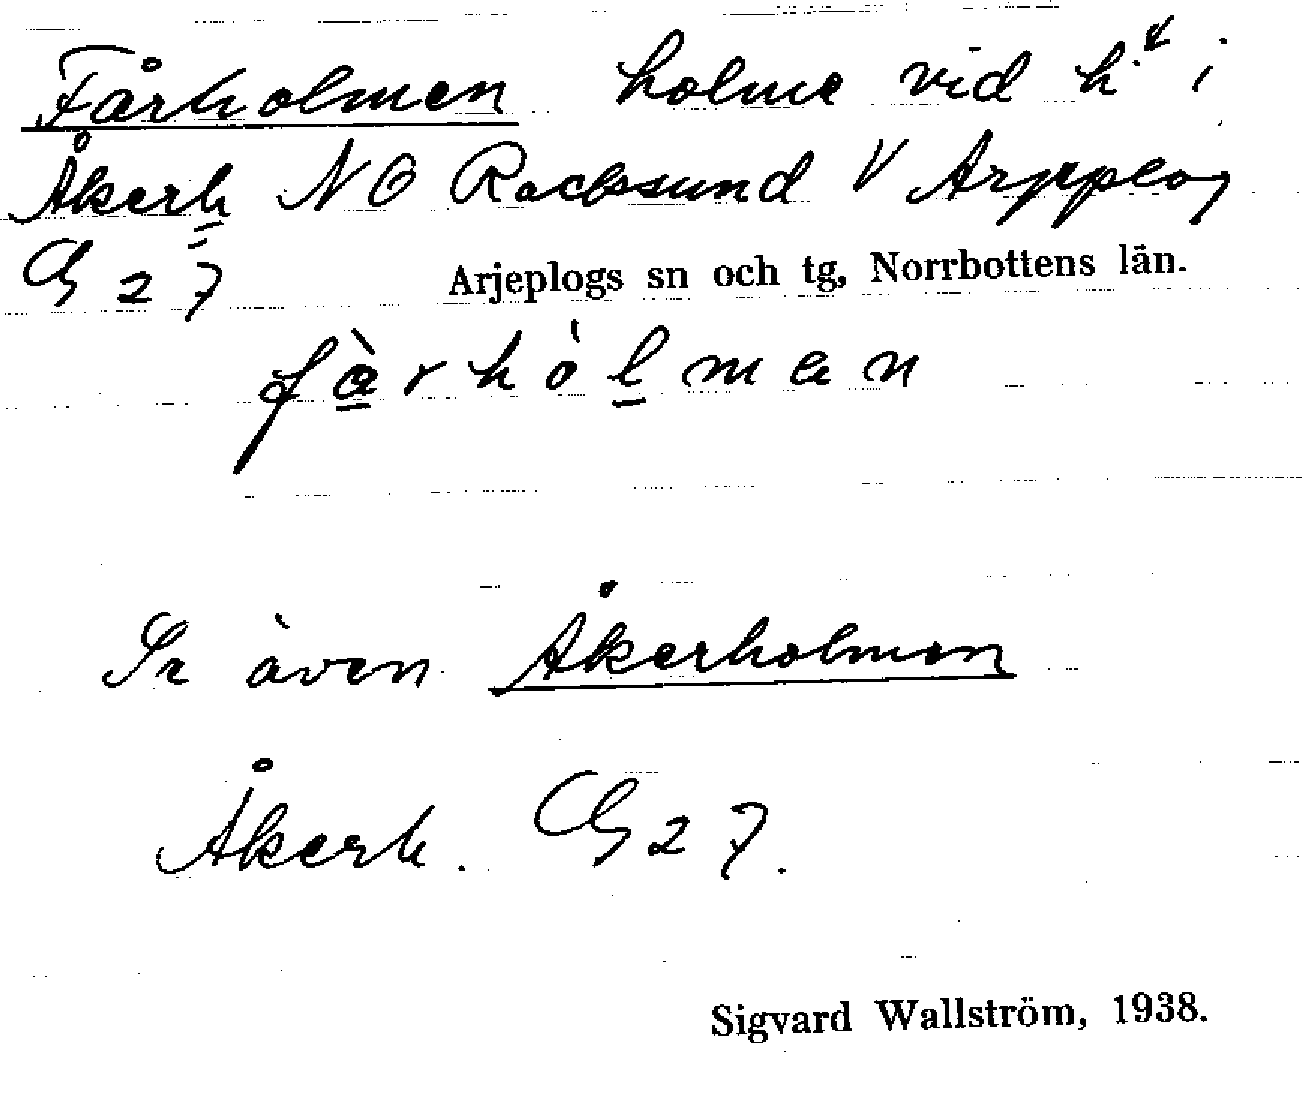 Fårholmen holme vid h. i
Åkerh NO Racksund V Arjeplog
G 27
Arjeplogs sn och tg, Norrbottens län.
fàrhólman
Se även Åkerholmen
Åkerh. G 27.
Sigvard Wallström, 1938.